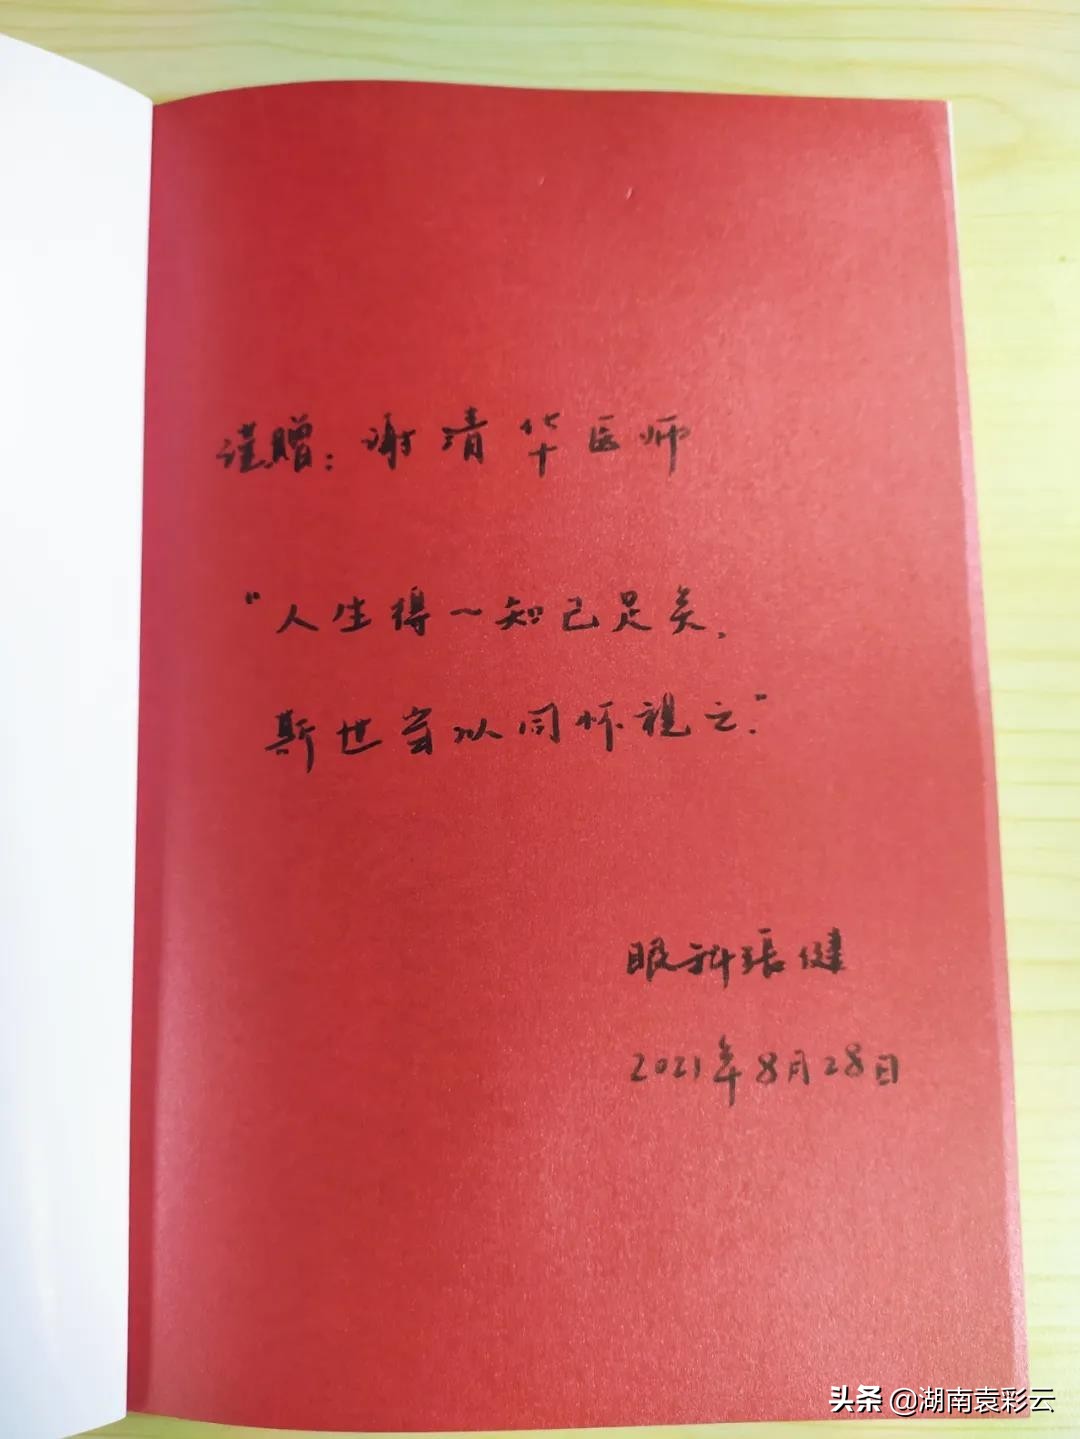 谨赠：谢清华医师
“人生得一知己足矣，
斯世当以同怀视之”
眼科张健
2021年8月28日
头条 @湖南袁彩云